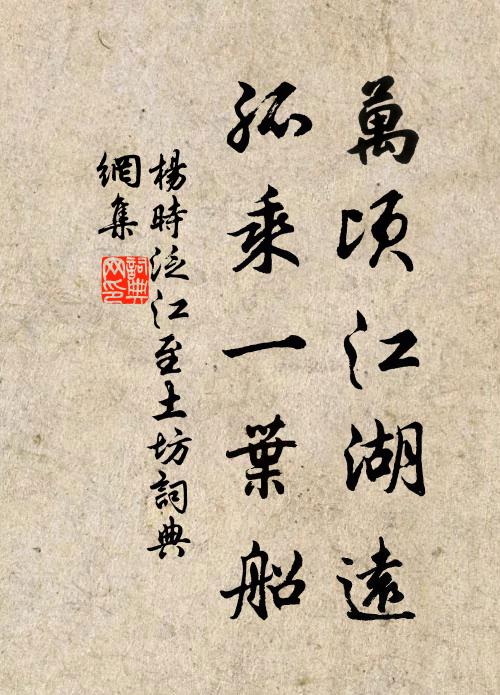 萬頃江湖遠
孤乘一葉船
楊時泛江至土坊詞典
網集
詞典網印